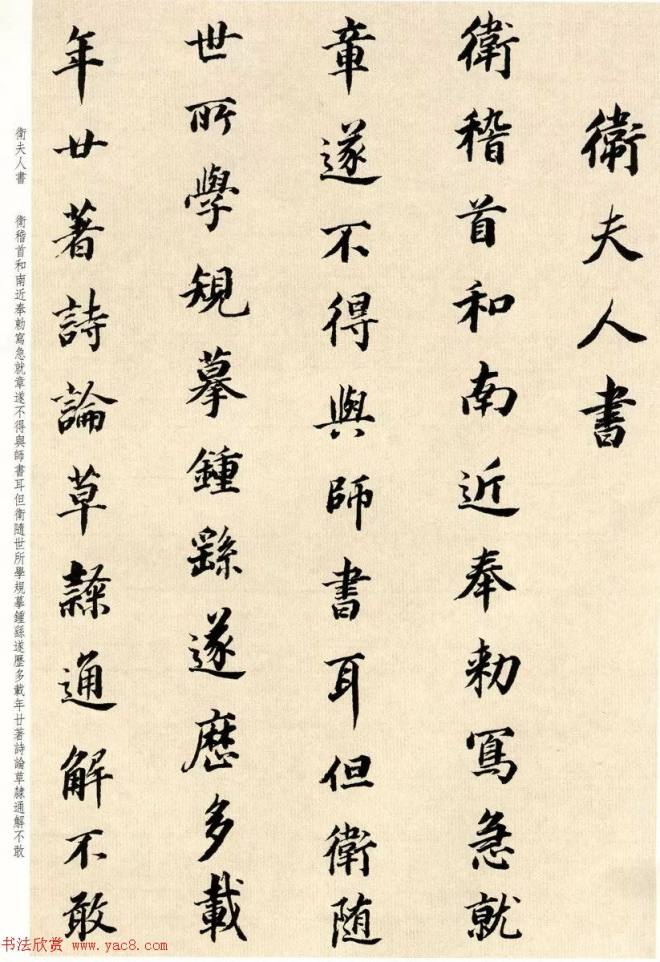 衛夫人書
衛稽首和南近奉勅寫急就
章遂不得與師書耳但衛随
世所學規摹鍾繇遂歷多載
年廿著詩論草隸通解不敢
衛夫人書 衛稽首和南近奉勅寫急就章遂不得與師書耳但衛隨世所學規摹鍾繇遂歷多載年廿著詩論草隸通解不敢
书法欣赏 www.yac8.com